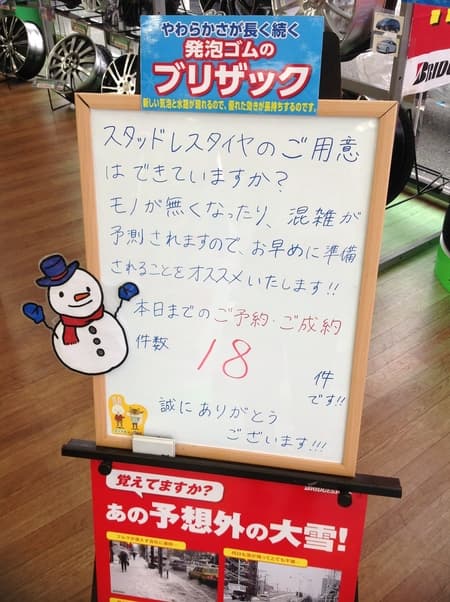 やわらかさが長く続く
発泡ゴムの
ブリザック
新しい気泡と水路が現れるので、優れた効きが長持ちするのです。
スタッドレスタイヤのご用意
はできていますか?
モノが無くなったり、混雑が
予測されますので、お早めに準備
されることをオススメいたします!!
本日までのご予約・ご成約
件数 18 件
です!!
誠にありがとう
ございます!!!
覚えてますか?
あの予想外の大雪!